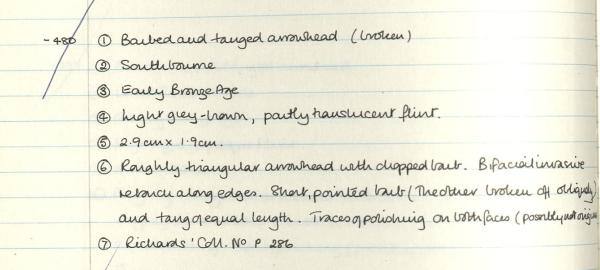 -480 ① Barbed and tanged arrowhead (broken)
② Southbourne
③ Early Bronze Age
④ Light grey-brown, partly translucent flint.
⑤ 2.9cm x 1.9cm.
⑥ Roughly triangular arrowhead with chopped barb. Bifacial invasive
retouch along edges. Short, pointed barb (The other broken off obliquely)
and tang of equal length. Traces of polishing on both faces (possibly not
⑦ Richards' Coll. No P 286